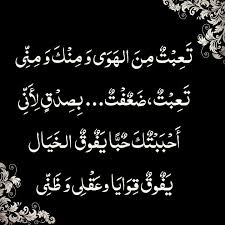 تَعِبْتُ مِنَ الهَوَى وَ مِنْكَ وَ مِنِّى
تَعِبْتُ، ضَعُفْتُ... بِصِدْقٍ لِأَنِّى
أَحْبَبْتُكَ حُبًّا يَفُوقُ الخَيَال
يَفُوقُ قِوَايَا وعَقْلِى وَ ظَنِّى